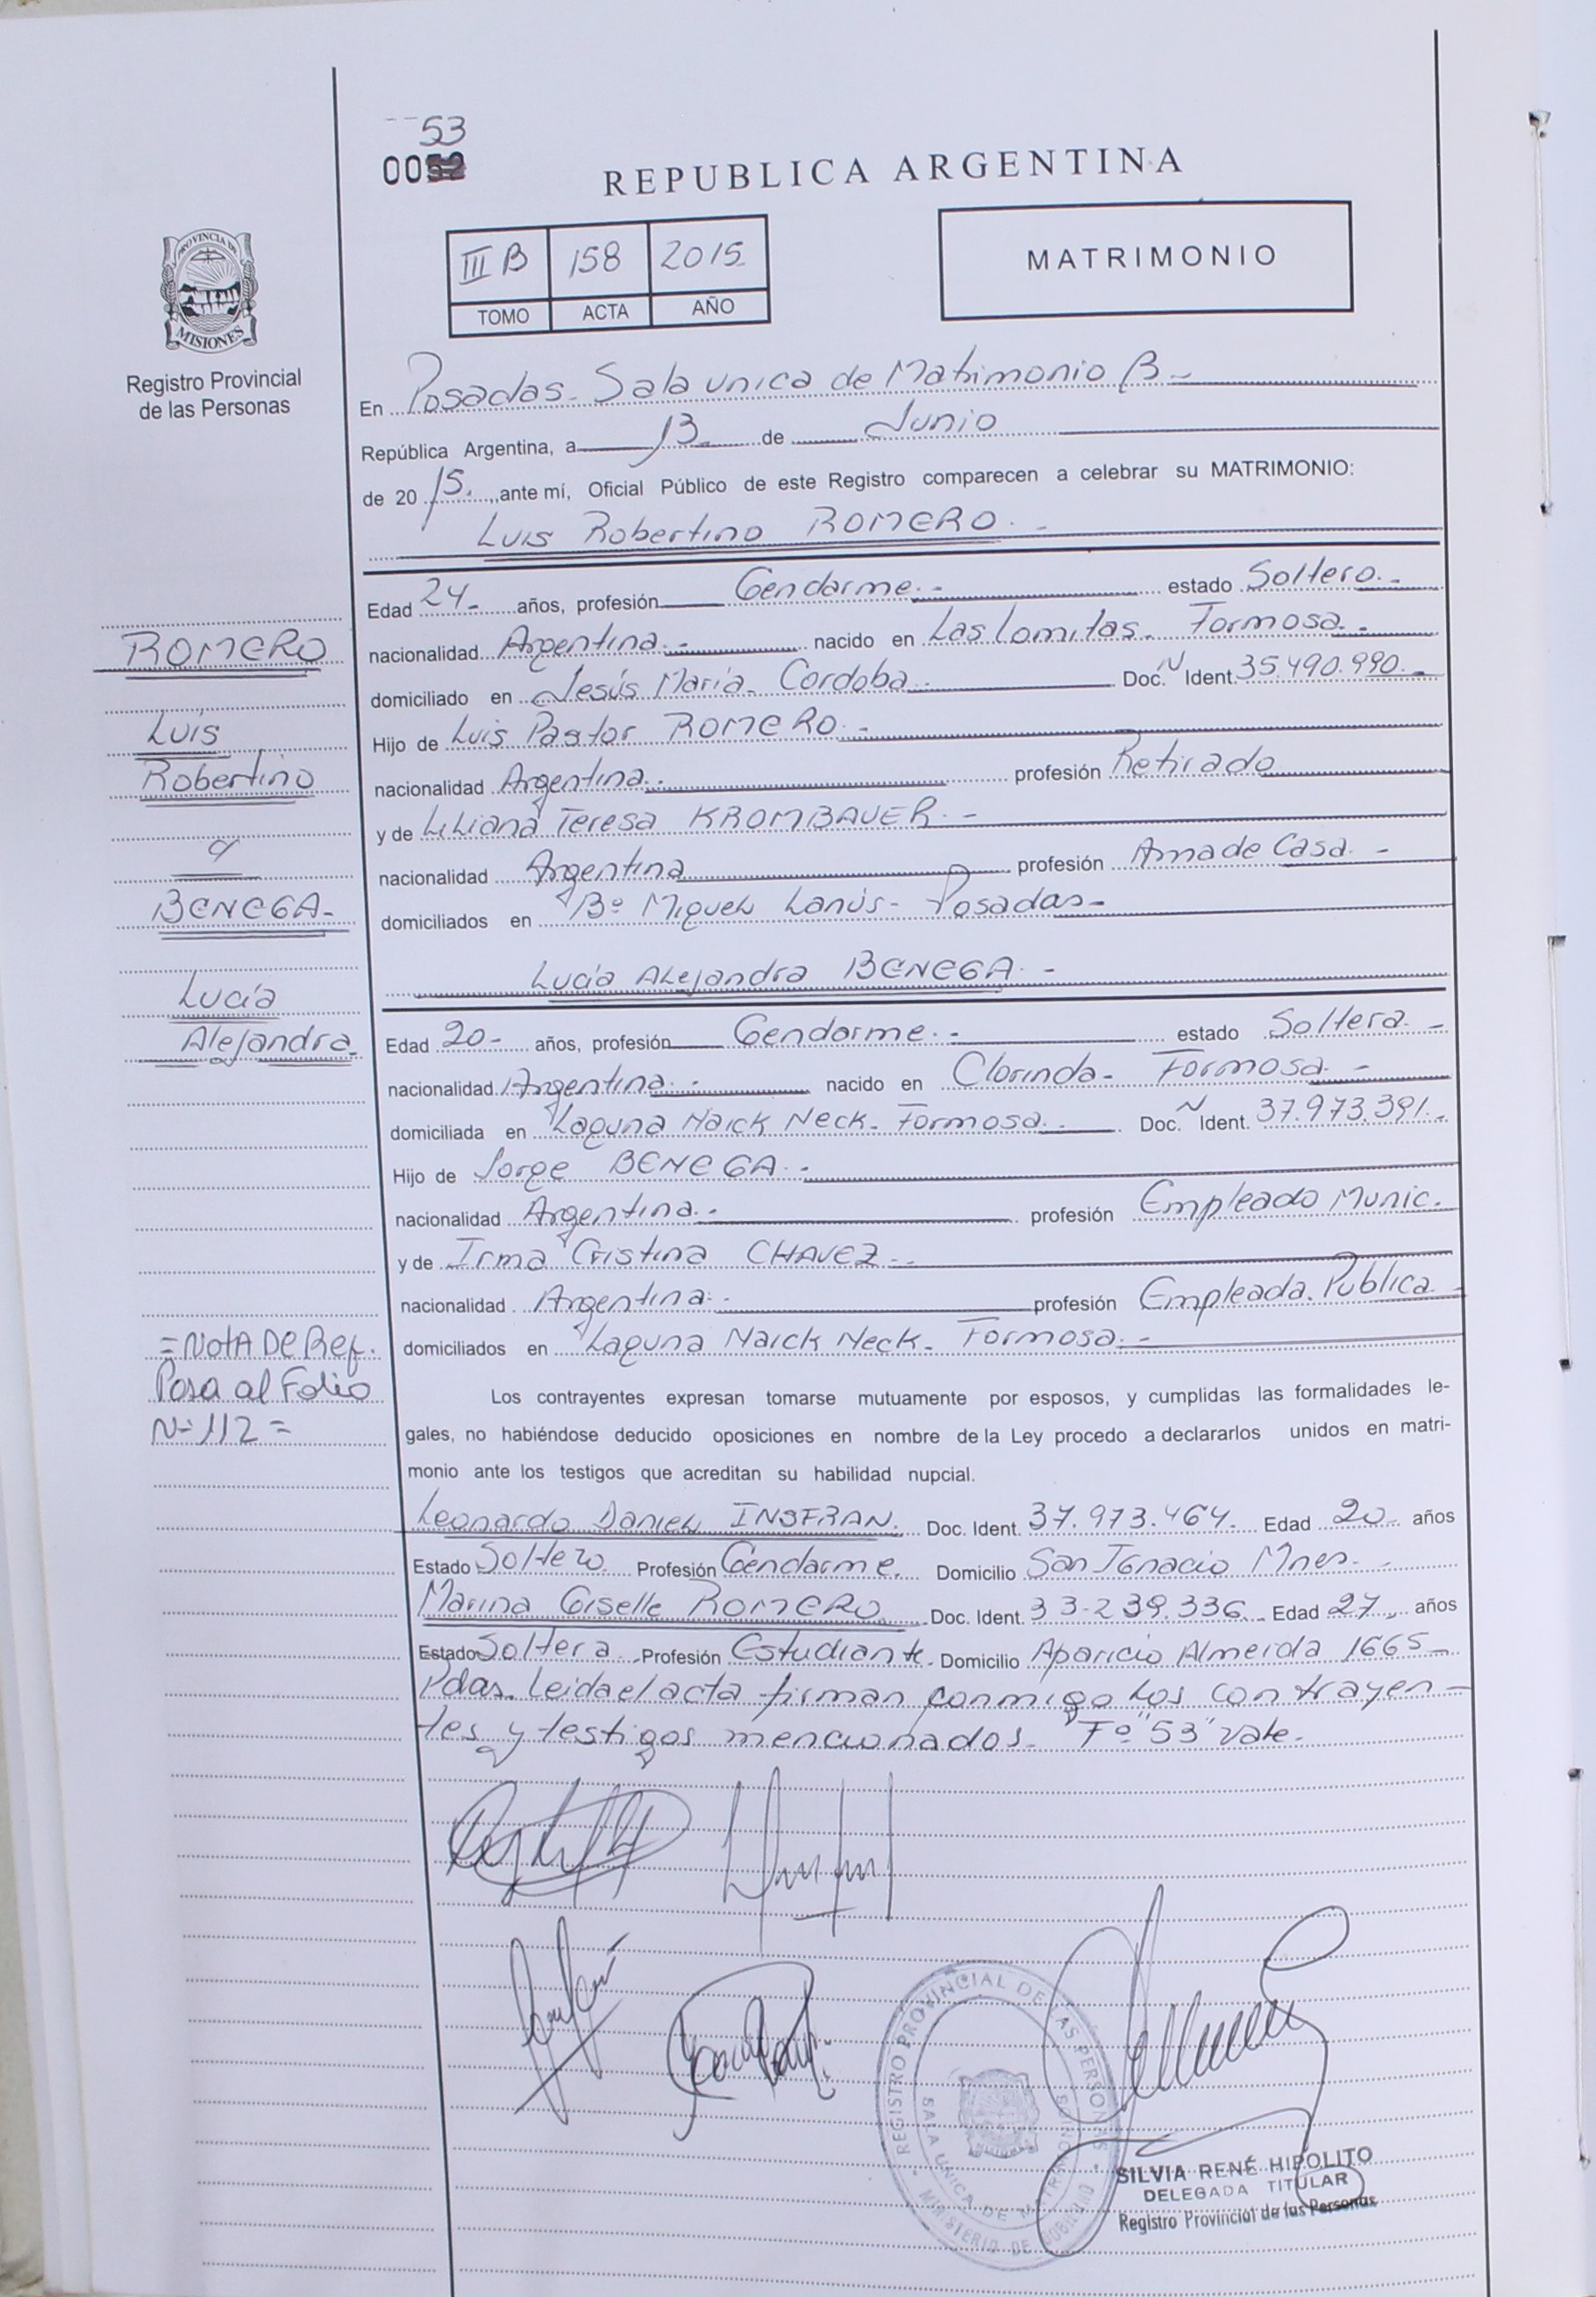 53
00
REPUBLICA ARGENTINA
III B 158 2015
TOMO ACTA AÑO
MATRIMONIO
PROVINCIA DE
MISIONES
Registro Provincial
de las Personas
En Posadas- Sala unica de Matrimonio B-
República Argentina, a 13- de Junio
de 20 15. ,ante mí, Oficial Público de este Registro comparecen a celebrar su MATRIMONIO:
Luis Robertino ROMERO.-
Edad 24- años, profesión Gendarme.- estado Soltero.-
nacionalidad Argentina.- nacido en Las Lomitas- Formosa.-
domiciliado en Jesús María- Cordoba.- Doc. N Ident. 35.490.990.-
Hijo de Luis Pastor ROMERO.-
nacionalidad Argentina.- profesión Retirado
y de Liliana Teresa KROMBAUER.-
nacionalidad Argentina profesión Ama de Casa.-
domiciliados en Bº Miguel Lanús- Posadas-
Lucía Alejandra BENEGA.-
Edad 20- años, profesión Gendarme.- estado Soltera.-
nacionalidad Argentina.- nacido en Clorinda- Formosa.-
domiciliada en Laguna Naick Neck- Formosa.- Doc. N Ident. 37.973.391.-
Hijo de Jorge BENEGA.-
nacionalidad Argentina.- profesión Empleado Munic.
y de Irma Cristina CHAVEZ.-
nacionalidad Argentina.- profesión Empleada Publica-
domiciliados en Laguna Naick Neck- Formosa.-
Los contrayentes expresan tomarse mutuamente por esposos, y cumplidas las formalidades le-
gales, no habiéndose deducido oposiciones en nombre de la Ley procedo a declararlos unidos en matri-
monio ante los testigos que acreditan su habilidad nupcial.
Leonardo Daniel INSFRAN. Doc. Ident. 37.973.464. Edad 20- años
Estado Soltero. Profesión Gendarme. Domicilio San Ignacio Mnes.-
Marina Giselle ROMERO. Doc. Ident. 33-239.336- Edad 27- años
Estado Soltera. Profesión Estudiante. Domicilio Aparicio Almeida 1665-
Pdas. Leida el acta firman conmigo los contrayen-
tes y testigos mencionados- Fº "53" Vale.
ROMERO
Luis
Robertino
y
BENEGA-
Lucía
Alejandra
=NOTA DE Ref.
Pasa al Folio
Nº 112=
REGISTRO PROVINCIAL DE LAS PERSONAS
SALA UNICA DE MATRIMONIOS
MINISTERIO DE GOBIERNO
SILVIA RENÉ HIPOLITO
DELEGADA TITULAR
Registro Provincial de las Personas